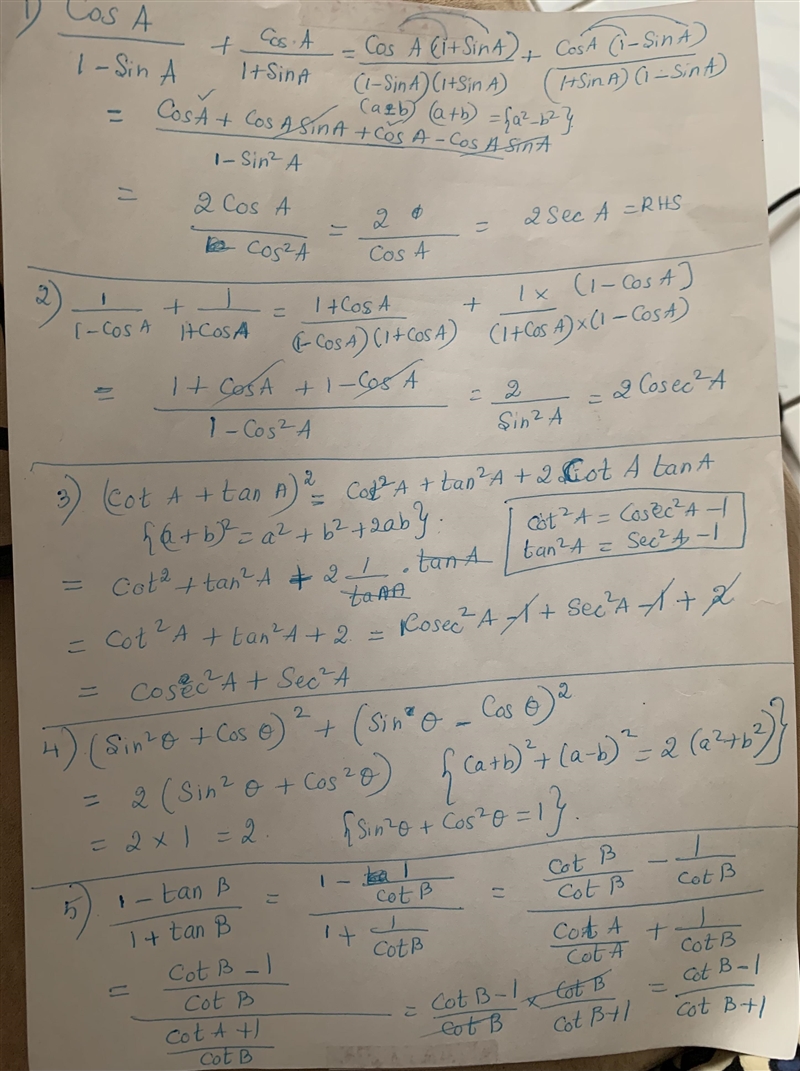 1) Cos A / (1 - Sin A) + Cos A / (1 + Sin A) = Cos A (1 + Sin A) / (1 - Sin A)(1 + Sin A) + Cos A (1 - Sin A) / (1 + Sin A)(1 - Sin A)
(a - b) (a + b) = {a² - b²}
= Cos A + Cos A Sin A + Cos A - Cos A Sin A / 1 - Sin² A
= 2 Cos A / Cos² A = 2 / Cos A = 2 Sec A = RHS
2) 1 / (1 - Cos A) + 1 / (1 + Cos A) = 1 + Cos A / (1 - Cos A)(1 + Cos A) + 1 × (1 - Cos A) / (1 + Cos A) × (1 - Cos A)
= 1 + Cos A + 1 - Cos A / 1 - Cos² A = 2 / Sin² A = 2 Cosec² A
3) (Cot A + tan A)² = Cot² A + tan² A + 2 Cot A tan A
{(a + b)² = a² + b² + 2ab}.
Cot² A = Cosec² A - 1
tan² A = Sec² A - 1
= Cot² + tan² A + 2 1 / tan A . tan A
= Cot² A + tan² A + 2 = Cosec² A - 1 + Sec² A - 1 + 2
= Cosec² A + Sec² A
4) (Sin² θ + Cos θ)² + (Sin θ - Cos θ)²
= 2 (Sin² θ + Cos² θ) {(a + b)² + (a - b)² = 2 (a² + b²)}
= 2 × 1 = 2. {Sin² θ + Cos² θ = 1}.
5) 1 - tan B / 1 + tan B = (1 - 1 / Cot B) / (1 + 1 / Cot B) = (Cot B / Cot B - 1 / Cot B) / (Cot A / Cot A + 1 / Cot B)
= (Cot B - 1 / Cot B) / (Cot A + 1 / Cot B) = Cot B - 1 / Cot B × Cot B / Cot B + 1 = Cot B - 1 / Cot B + 1